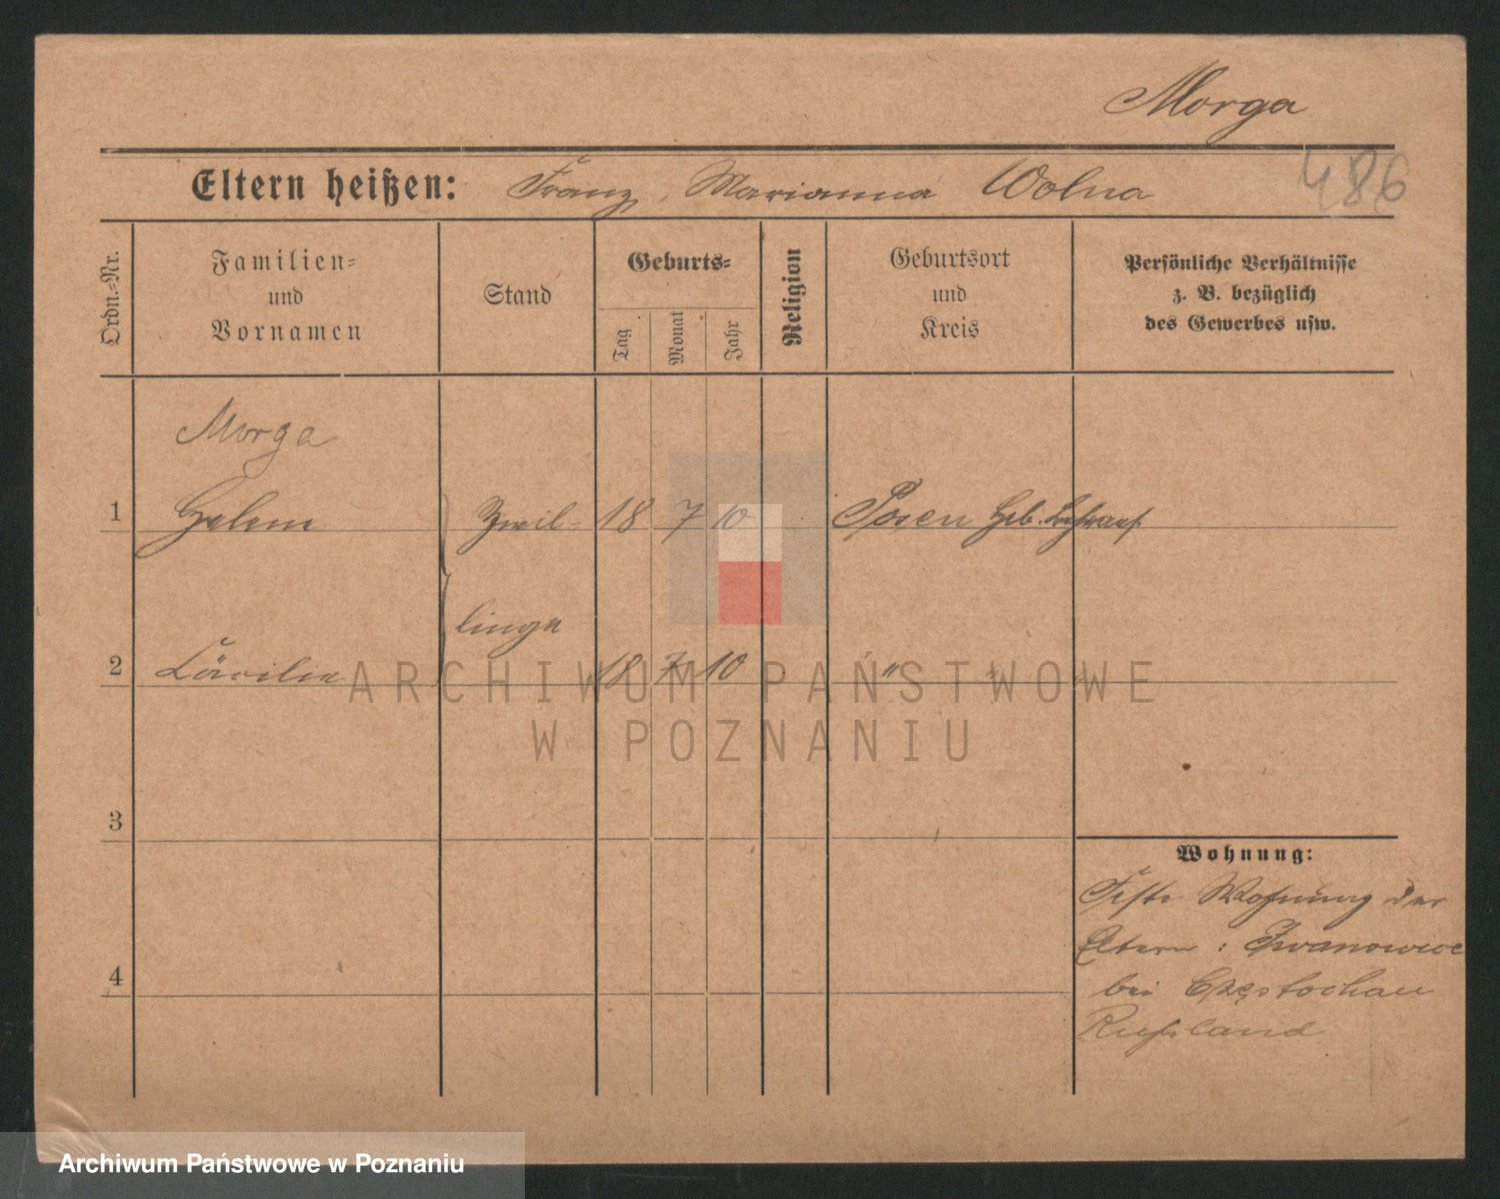 Morga
486
Eltern heißen: Franz, Marianna Wolna
Ordn.-Nr.
Familien-
und
Vornamen
Stand
Geburts-
Tag
Monat
Jahr
Religion
Geburtsort
und
Kreis
Persönliche Verhältnisse
z. B. bezüglich
des Gewerbes usw.
Morga
1 Helene Zwil- 18 7 10 Posen Heb. Lehranst.
linge
2 Cäcilie 18 7 10 "
3
4
Wohnung:
Feste Wohnung der
Eltern: Iwanowice
bei Częstochau
Russland
ARCHIWUM PAŃSTWOWE
W POZNANIU
Archiwum Państwowe w Poznaniu